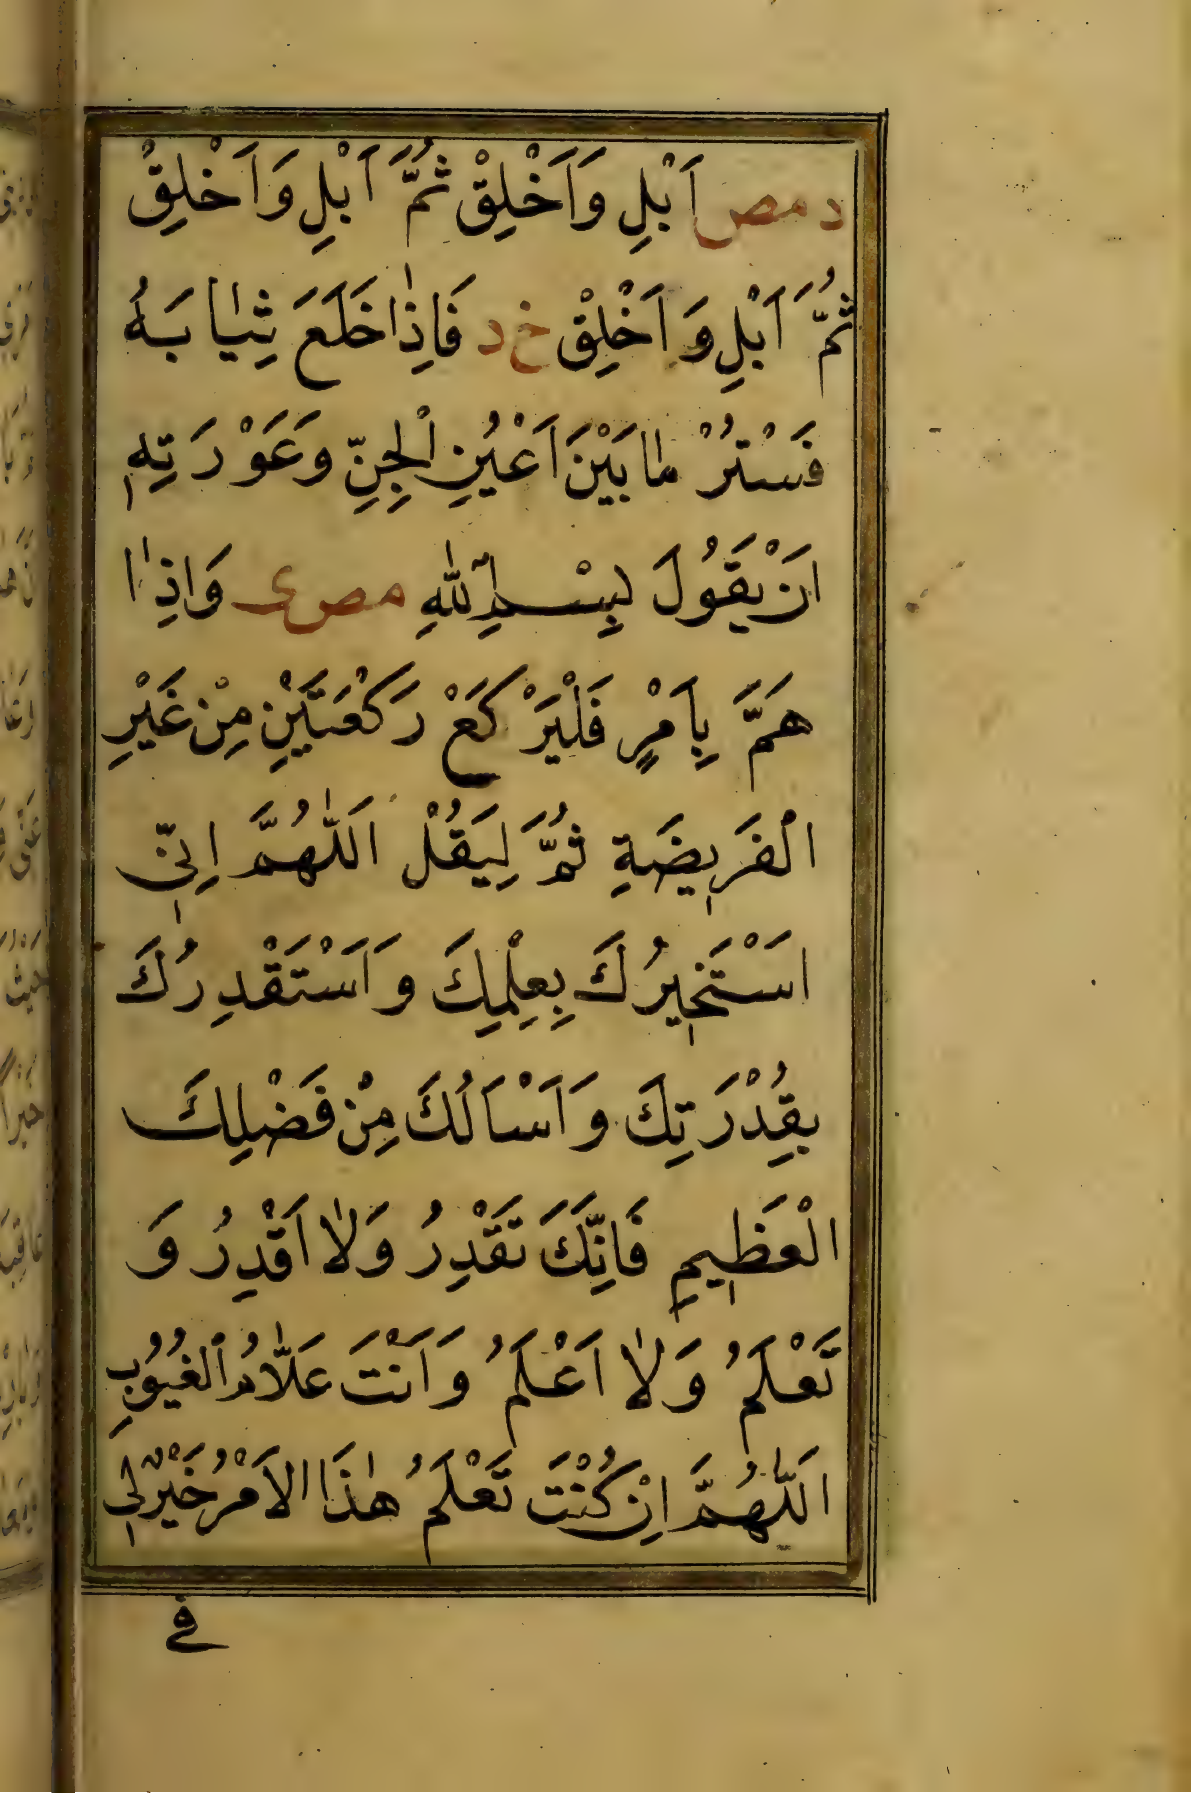 د مص اَبْلِ وَاَخْلِقْ ثُمَّ اَبْلِ وَاَخْلِقْ
ثُمَّ اَبْلِ وَاَخْلِقْ خ د فَاِذٰا خَلَعَ ثِيٰابَهُ
فَسَتْرُ مٰا بَيْنَ اَعْيُنِ الْجِنِّ وَعَوْرَتِهِ
اَنْ يَقُولَ بِسْمِ اللّٰهِ مص ى وَاِذٰا
هَمَّ بِاَمْرٍ فَلْيَرْكَعْ رَكْعَتَيْنِ مِنْ غَيْرِ
الْفَرِيضَةِ ثُمَّ لِيَقُلْ اَللّٰهُمَّ اِنِّى
اَسْتَخِيرُكَ بِعِلْمِكَ وَاَسْتَقْدِرُكَ
بِقُدْرَتِكَ وَاَسْاَلُكَ مِنْ فَضْلِكَ
الْعَظِيمِ فَاِنَّكَ تَقْدِرُ وَلٰا اَقْدِرُ وَ
تَعْلَمُ وَلٰا اَعْلَمُ وَاَنْتَ عَلّٰامُ الْغُيُوبِ
اَللّٰهُمَّ اِنْ كُنْتَ تَعْلَمُ هٰذَا الاَمْرُ خَيْرٌ لِى
فى